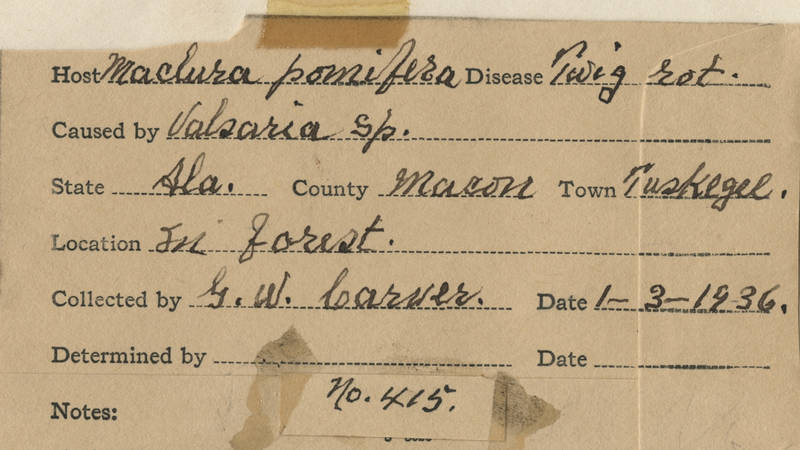 Host Maclura pomifera Disease Twig rot.
Caused by Valsaria sp.
State Ala. County Macon Town Tuskegee.
Location In forest.
Collected by G. W. Carver. Date 1-3-1936.
Determined by Date
Notes: No. 415.